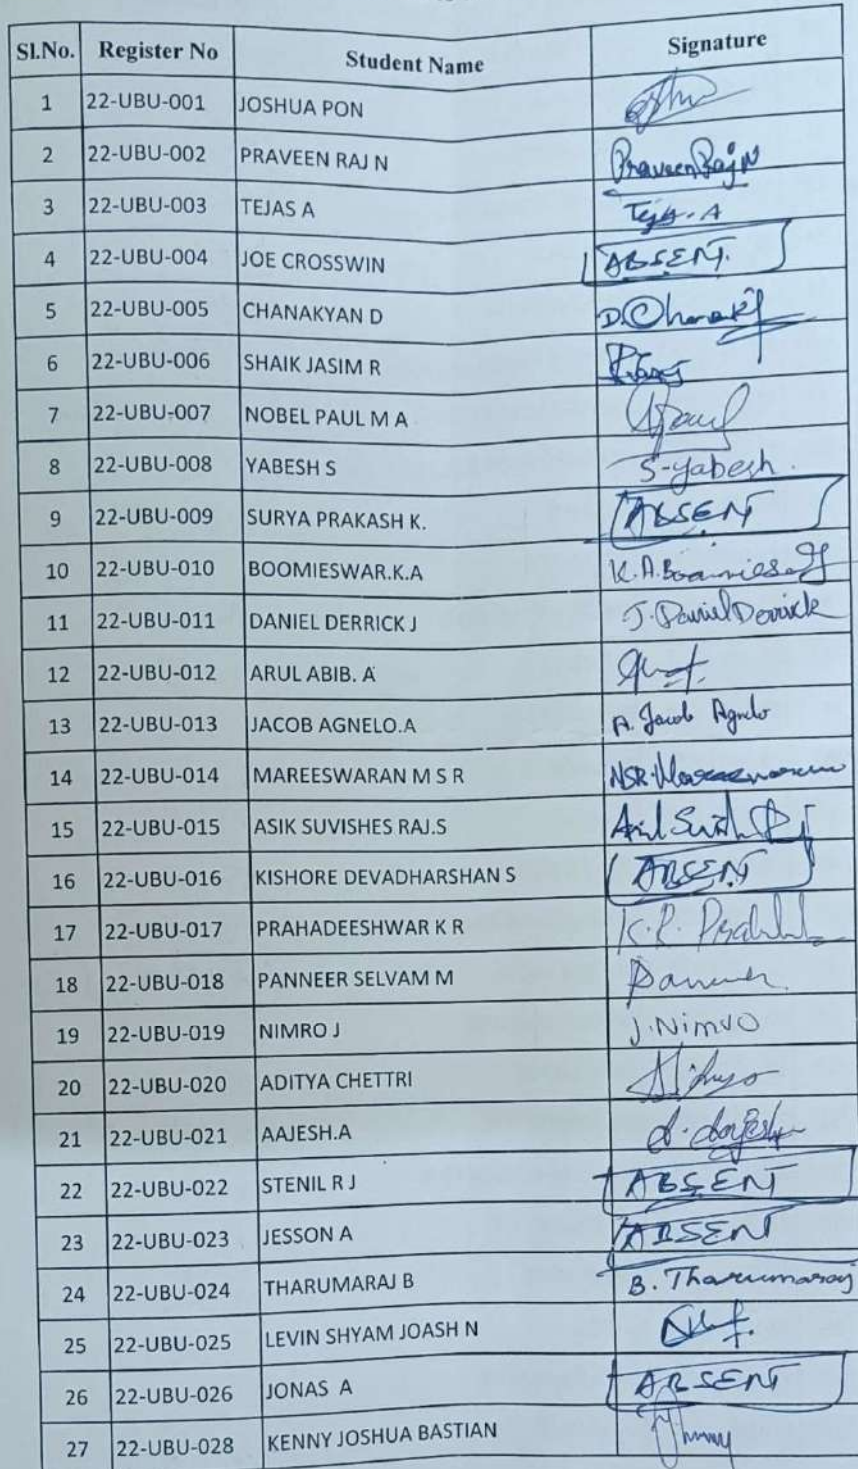 Sl.No. Register No Student Name Signature
1 22-UBU-001 JOSHUA PON
2 22-UBU-002 PRAVEEN RAJ N Praveen Raj N
3 22-UBU-003 TEJAS A Tejas. A
4 22-UBU-004 JOE CROSSWIN ABSENT.
5 22-UBU-005 CHANAKYAN D
6 22-UBU-006 SHAIK JASIM R
7 22-UBU-007 NOBEL PAUL M A
8 22-UBU-008 YABESH S S-yabesh.
9 22-UBU-009 SURYA PRAKASH K. ABSENT
10 22-UBU-010 BOOMIESWAR.K.A
11 22-UBU-011 DANIEL DERRICK J J. Daniel Derrick
12 22-UBU-012 ARUL ABIB. A
13 22-UBU-013 JACOB AGNELO.A A. Jacob Agnelo
14 22-UBU-014 MAREESWARAN M S R
15 22-UBU-015 ASIK SUVISHES RAJ.S
16 22-UBU-016 KISHORE DEVADHARSHAN S ABSENT
17 22-UBU-017 PRAHADEESHWAR K R
18 22-UBU-018 PANNEER SELVAM M
19 22-UBU-019 NIMRO J J. Nimro
20 22-UBU-020 ADITYA CHETTRI
21 22-UBU-021 AAJESH.A
22 22-UBU-022 STENIL R J ABSENT
23 22-UBU-023 JESSON A ABSENT
24 22-UBU-024 THARUMARAJ B B. Tharumaraj
25 22-UBU-025 LEVIN SHYAM JOASH N
26 22-UBU-026 JONAS A ABSENT
27 22-UBU-028 KENNY JOSHUA BASTIAN